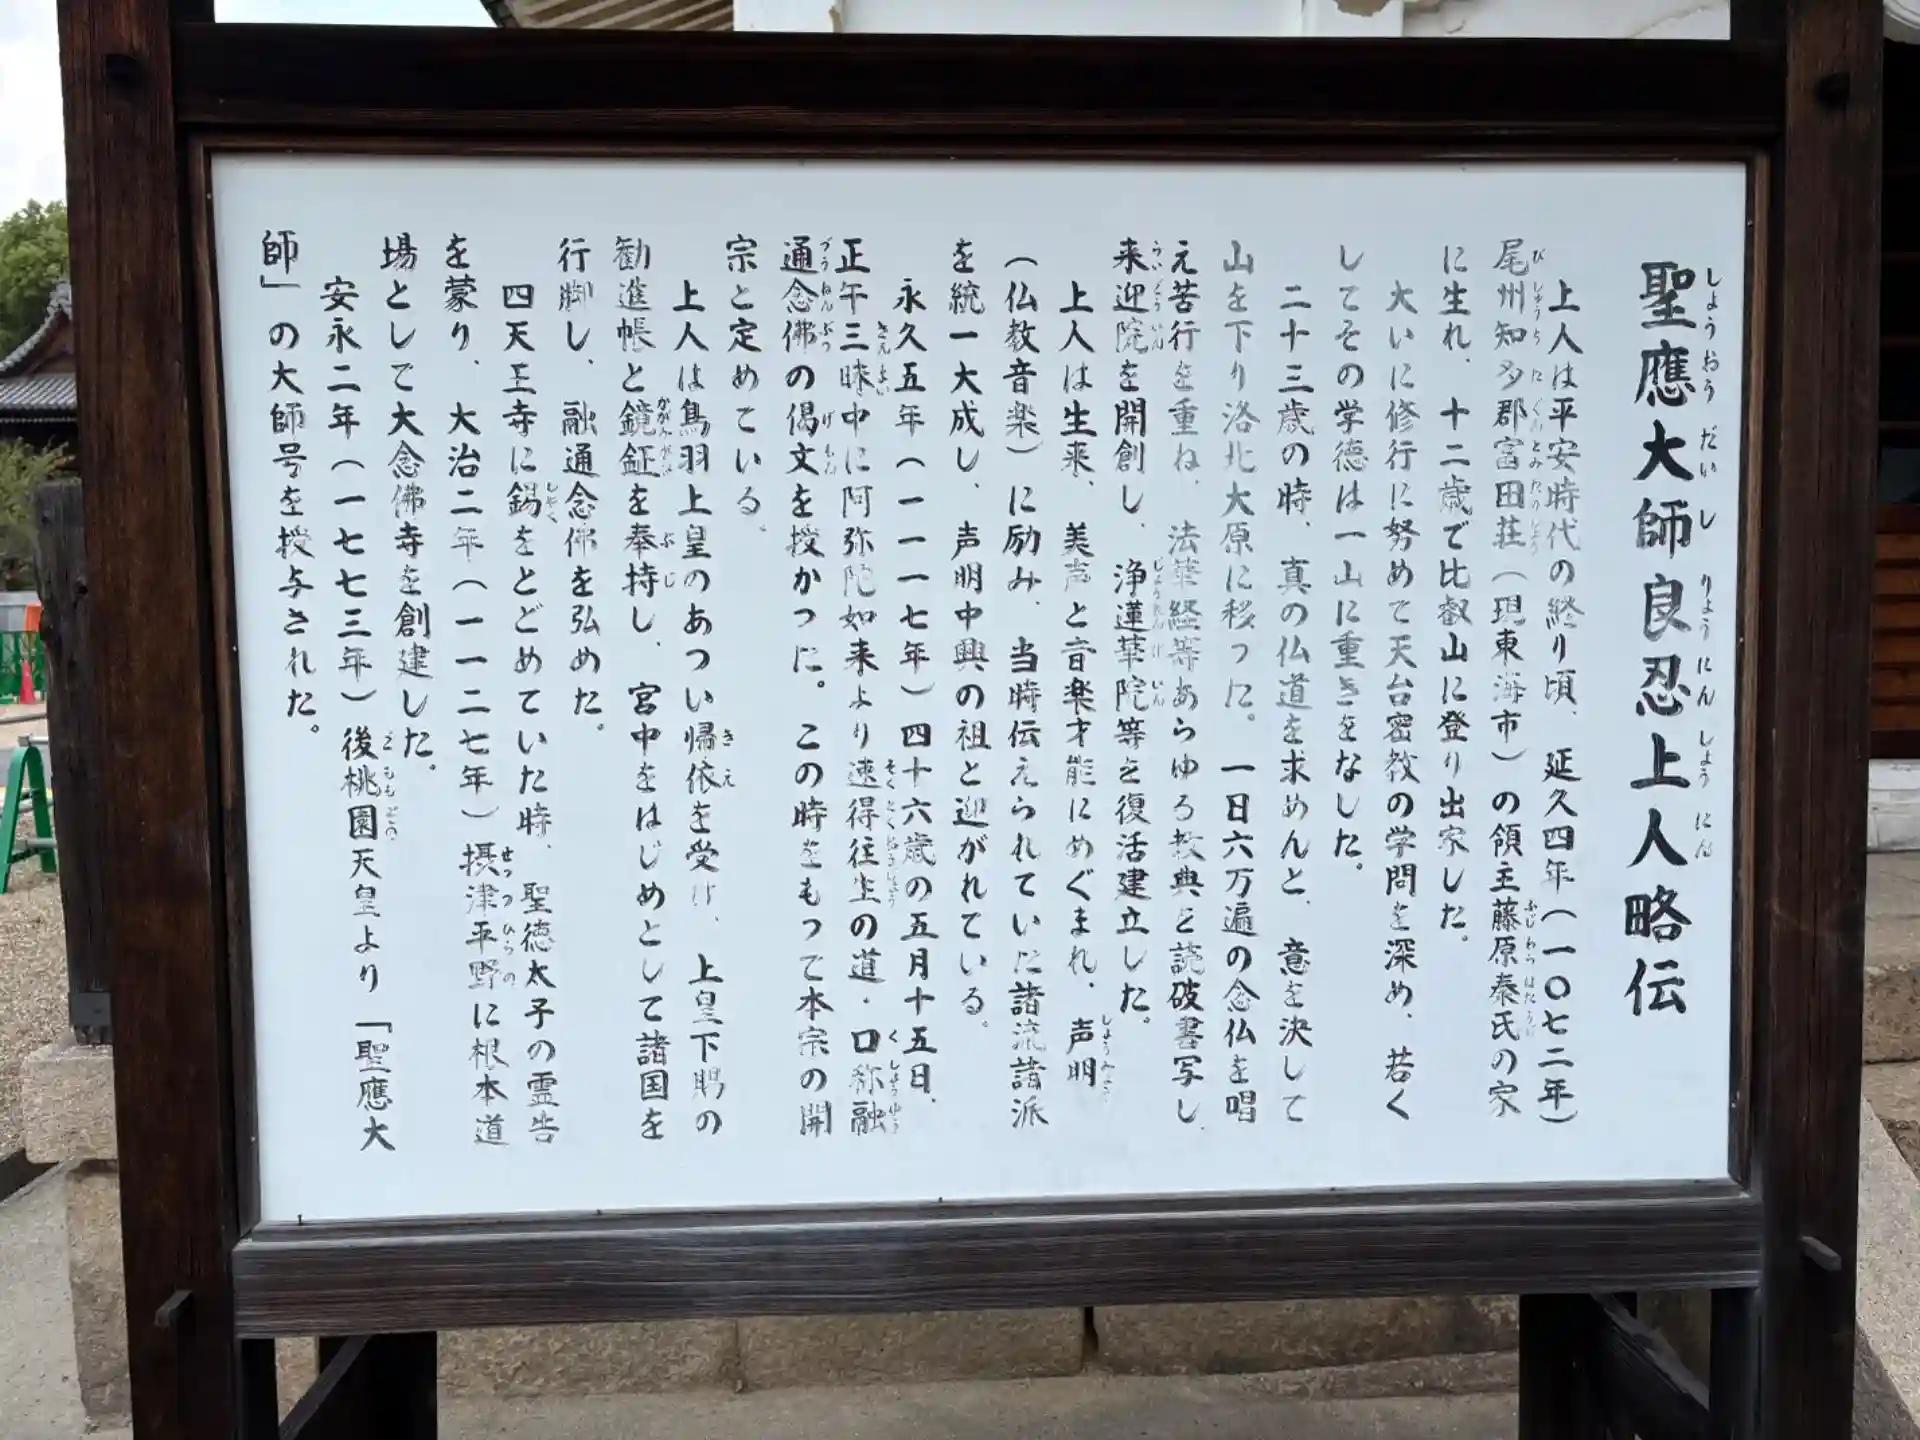 聖應大師良忍上人略伝
上人は平安時代の終り頃、延久四年(一〇七二年)
尾州知多郡富田荘(現東海市)の領主藤原秦氏の家
に生れ、十二歳で比叡山に登り出家した。
大いに修行に努めて天台密教の学問を深め、若く
してその学徳は一山に重きをなした。
二十三歳の時、真の仏道を求めんと、意を決して
山を下り洛北大原に移った。一日六万遍の念仏を唱
え苦行を重ね、法華経等あらゆる教典を読破書写し、
来迎院を開創し、浄蓮華院等を復活建立した。
上人は生来、美声と音楽才能にめぐまれ、声明
(仏教音楽)に励み、当時伝えられていた諸流諸派
を統一大成し、声明中興の祖と迎がれている。
永久五年(一一一七年)四十六歳の五月十五日、
正午三昧中に阿弥陀如来より速得往生の道・口称融
通念佛の偈文を授かった。この時をもって本宗の開
宗と定めている。
上人は鳥羽上皇のあつい帰依を受け、上皇下賜の
勧進帳と鏡鉦を奉持し、宮中をはじめとして諸国を
行脚し、融通念佛を弘めた。
四天王寺に錫をとどめていた時、聖徳太子の霊告
を蒙り、大治二年(一一二七年)摂津平野に根本道
場として大念佛寺を創建した。
安永二年(一七七三年)後桃園天皇より「聖應大
師」の大師号を授与された。